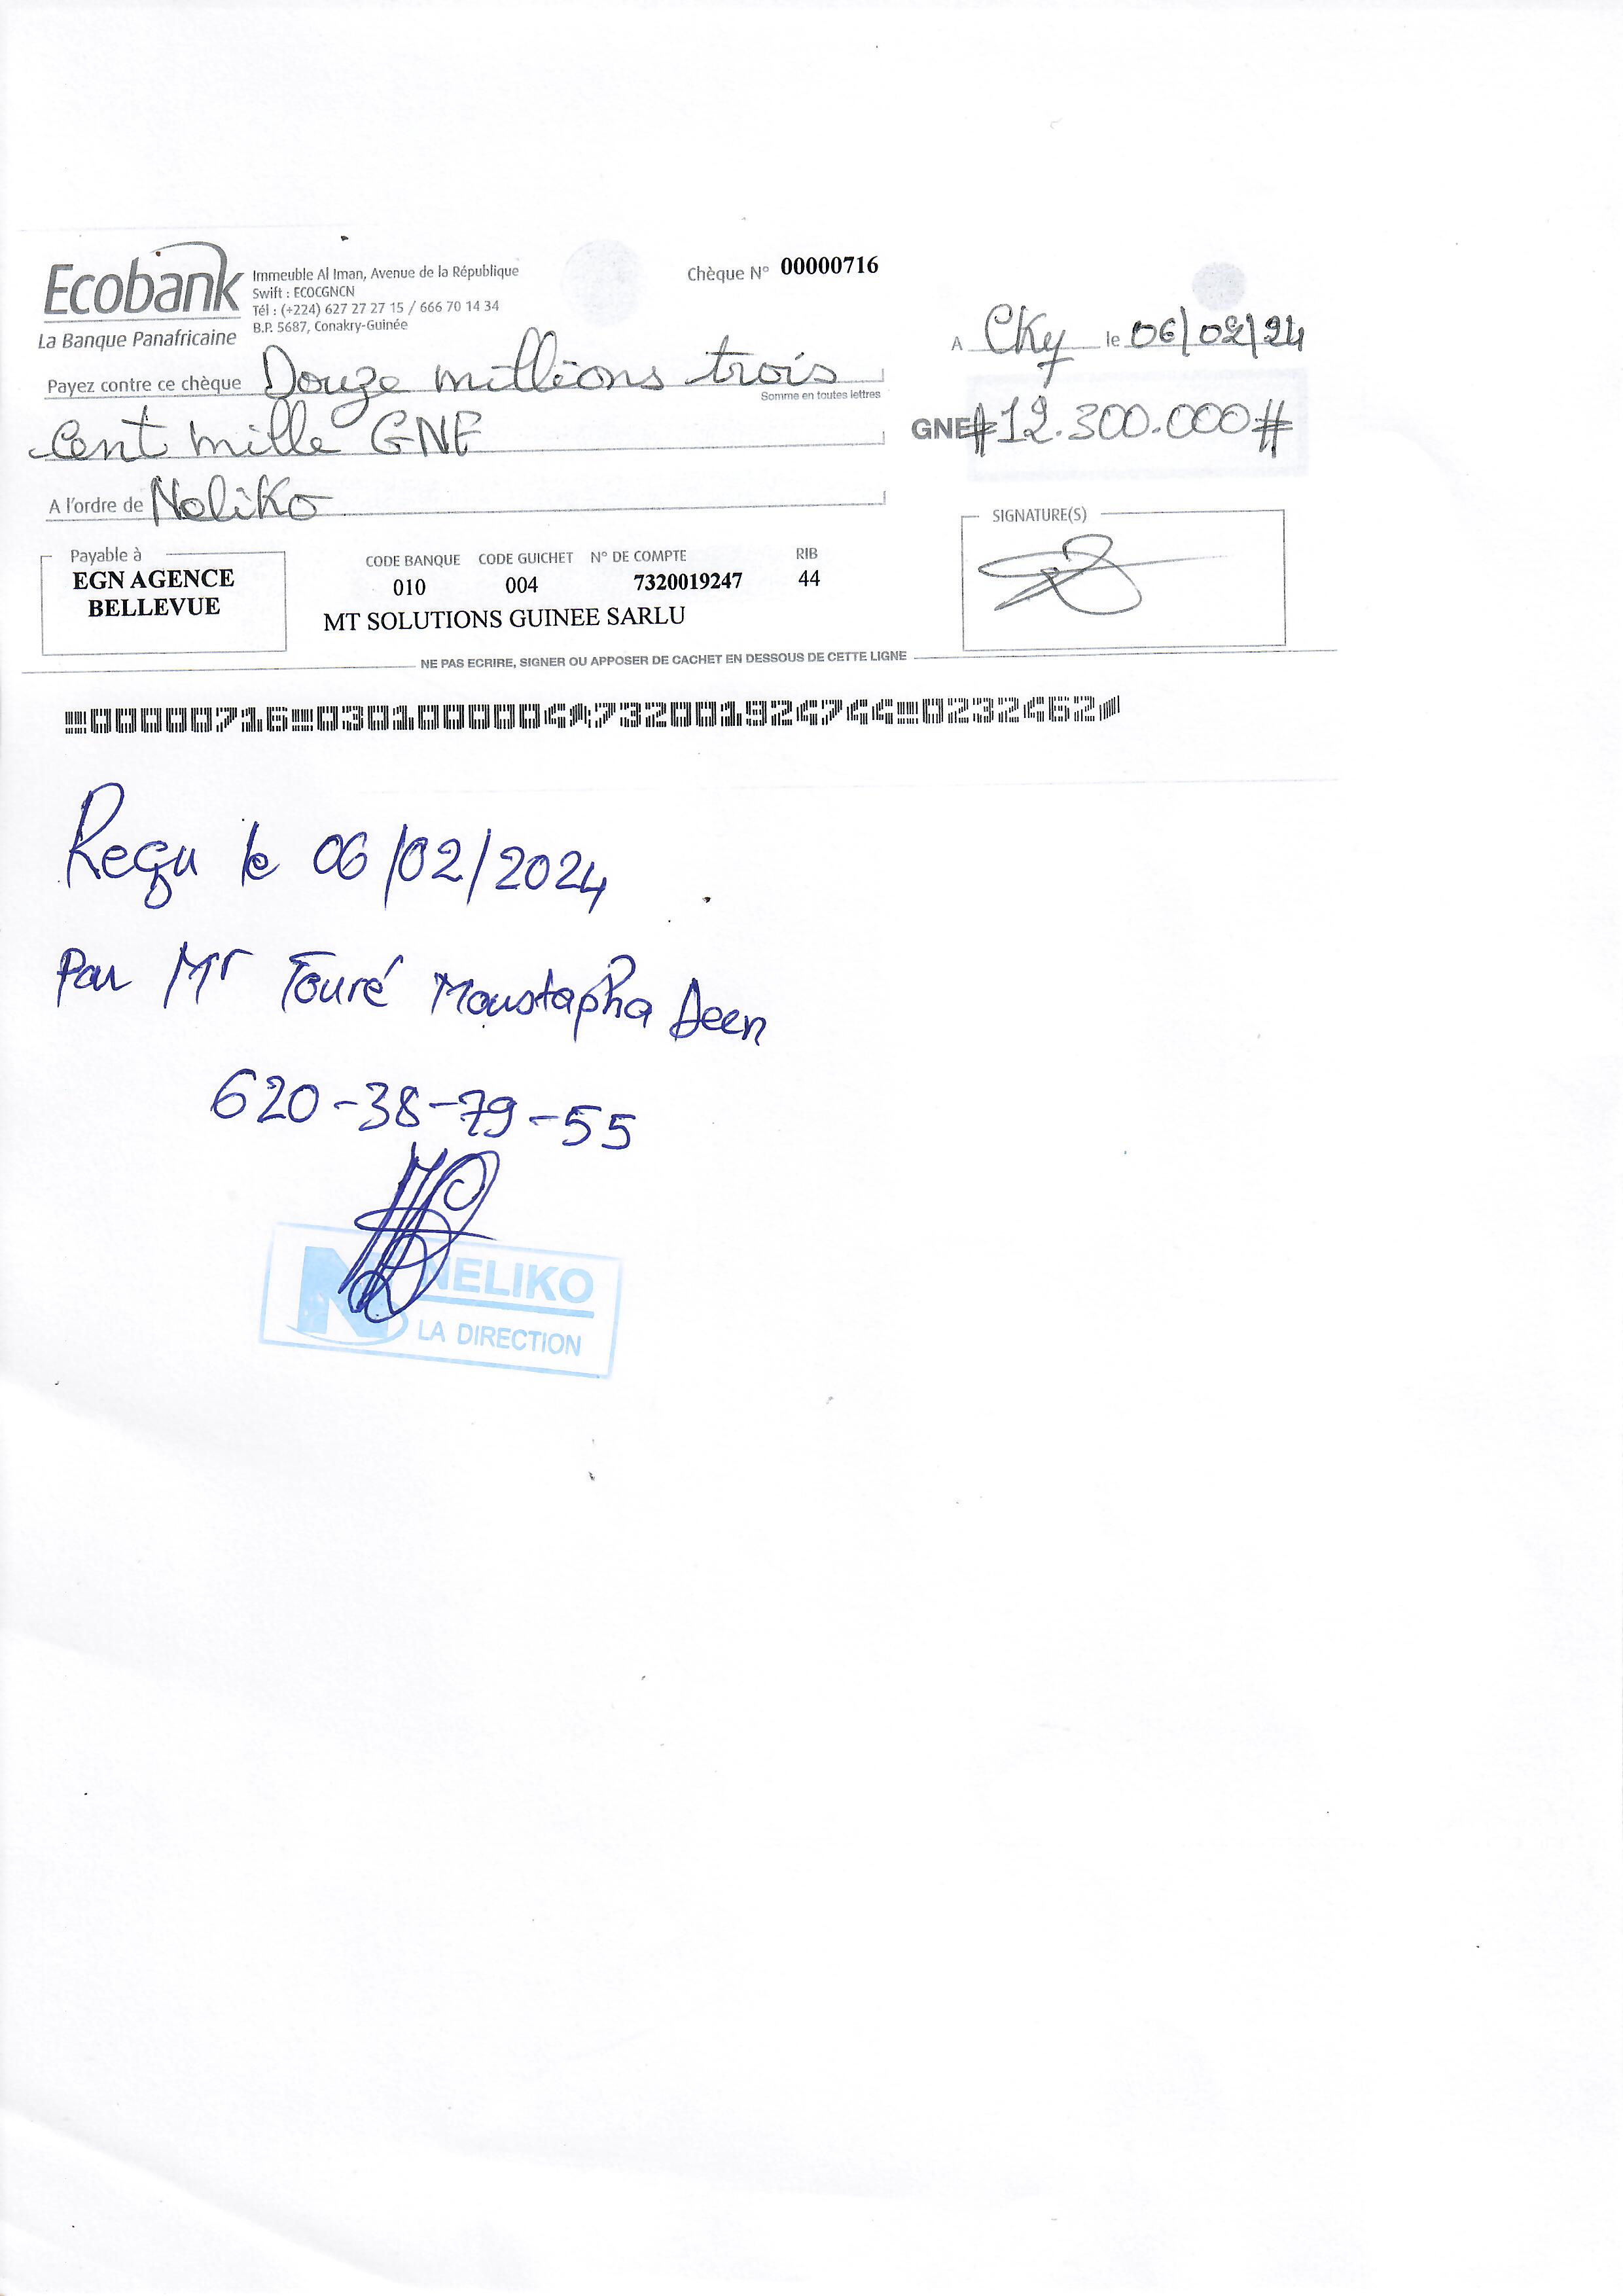 Ecobank
La Banque Panafricaine
Immeuble Al Iman, Avenue de la République
Swift : ECOCGNCN
Tél : (+224) 627 27 27 15 / 666 70 14 34
B.P. 5687, Conakry-Guinée
Chèque N° 00000716
A CKy le 06/02/24
Payez contre ce chèque Douze millions trois
Somme en toutes lettres
cent mille GNF
GNF #12.300.000#
A l'ordre de Neliko
Payable à
EGN AGENCE
BELLEVUE
CODE BANQUE CODE GUICHET N° DE COMPTE RIB
010 004 7320019247 44
MT SOLUTIONS GUINEE SARLU
SIGNATURE(S)
NE PAS ECRIRE, SIGNER OU APPOSER DE CACHET EN DESSOUS DE CETTE LIGNE
00000716 030100000004 732001924744 0232462
Reçu le 06/02/2024
Par Mr Touré Moustapha Deen
620-38-79-55
NELIKO
LA DIRECTION